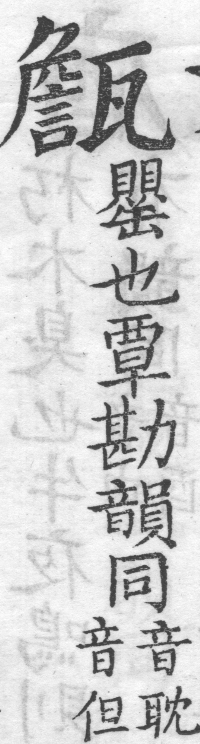 甔
罌也覃勘韻同
音耽
音但